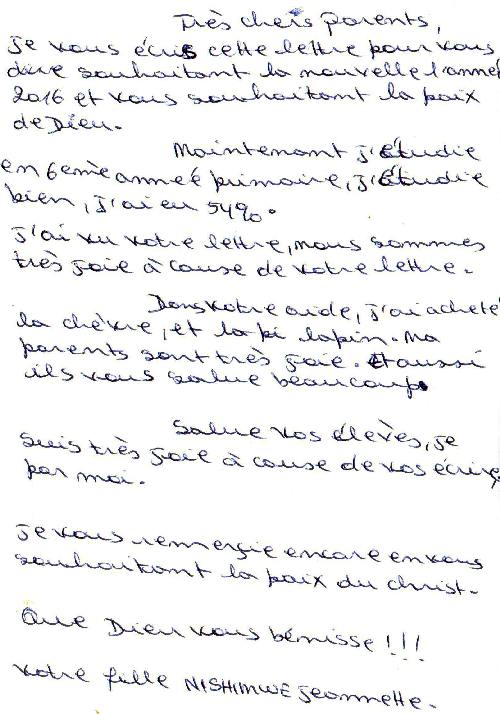 Très chers parents,
Je vous écris cette lettre pour vous
dire souhaitant la nouvelle l'année
2016 et vous souhaitant la paix
de Dieu.
Maintenant j'étudie
en 6emème année primaire, j'étudie
bien, j'ai eu 54%.
J'ai vu votre lettre, nous sommes
très joie à cause de votre lettre.
Dans votre aide, j'ai acheté
la chèvre, et la pi lapin. Ma
parents sont très joie. Et aussi
ils vous salue beaucoup.
Salue vos élevès, je
suis très joie à cause de vos écrire
par moi.
Je vous remerçie encore en vous
souhaitant la paix du christ.
Que Dieu vous bénisse !!!
Votre fille NISHIMWE Jeannette.